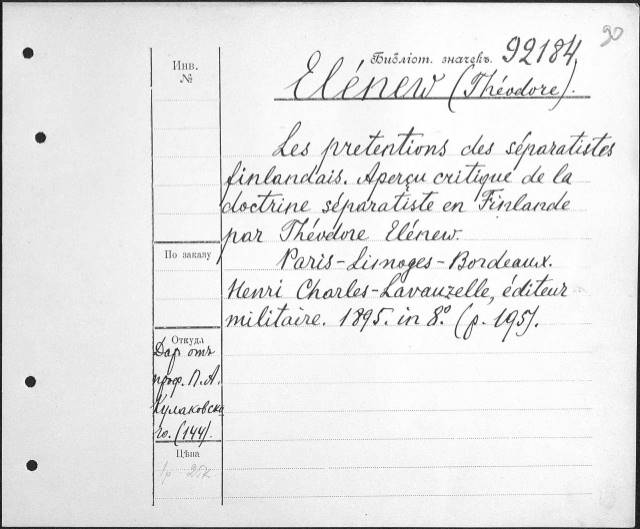 90
Библіот. значекъ. 92184
Инв.
№
Elénew (Théodore).
Les pretentions des séparatistes
finlandais. Aperçu critique de la
doctrine séparatiste en Finlande
par Théodore Elénew.
Paris-Limoges-Bordeaux.
Henri Charles-Lavauzelle, éditeur
militaire. 1895. in 8º. (p. 195).
По заказу
Откуда
Дар отъ
проф. П. А.
Кулаковска
го. (144).
Цѣна